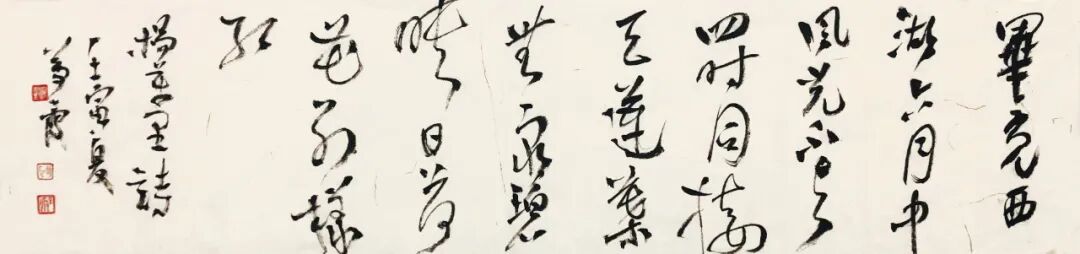 畢竟西
湖六月中
風光不与
四时同接
天蓮葉
無窮碧
映日荷
花别樣
紅
楊萬里詩
壬寅夏